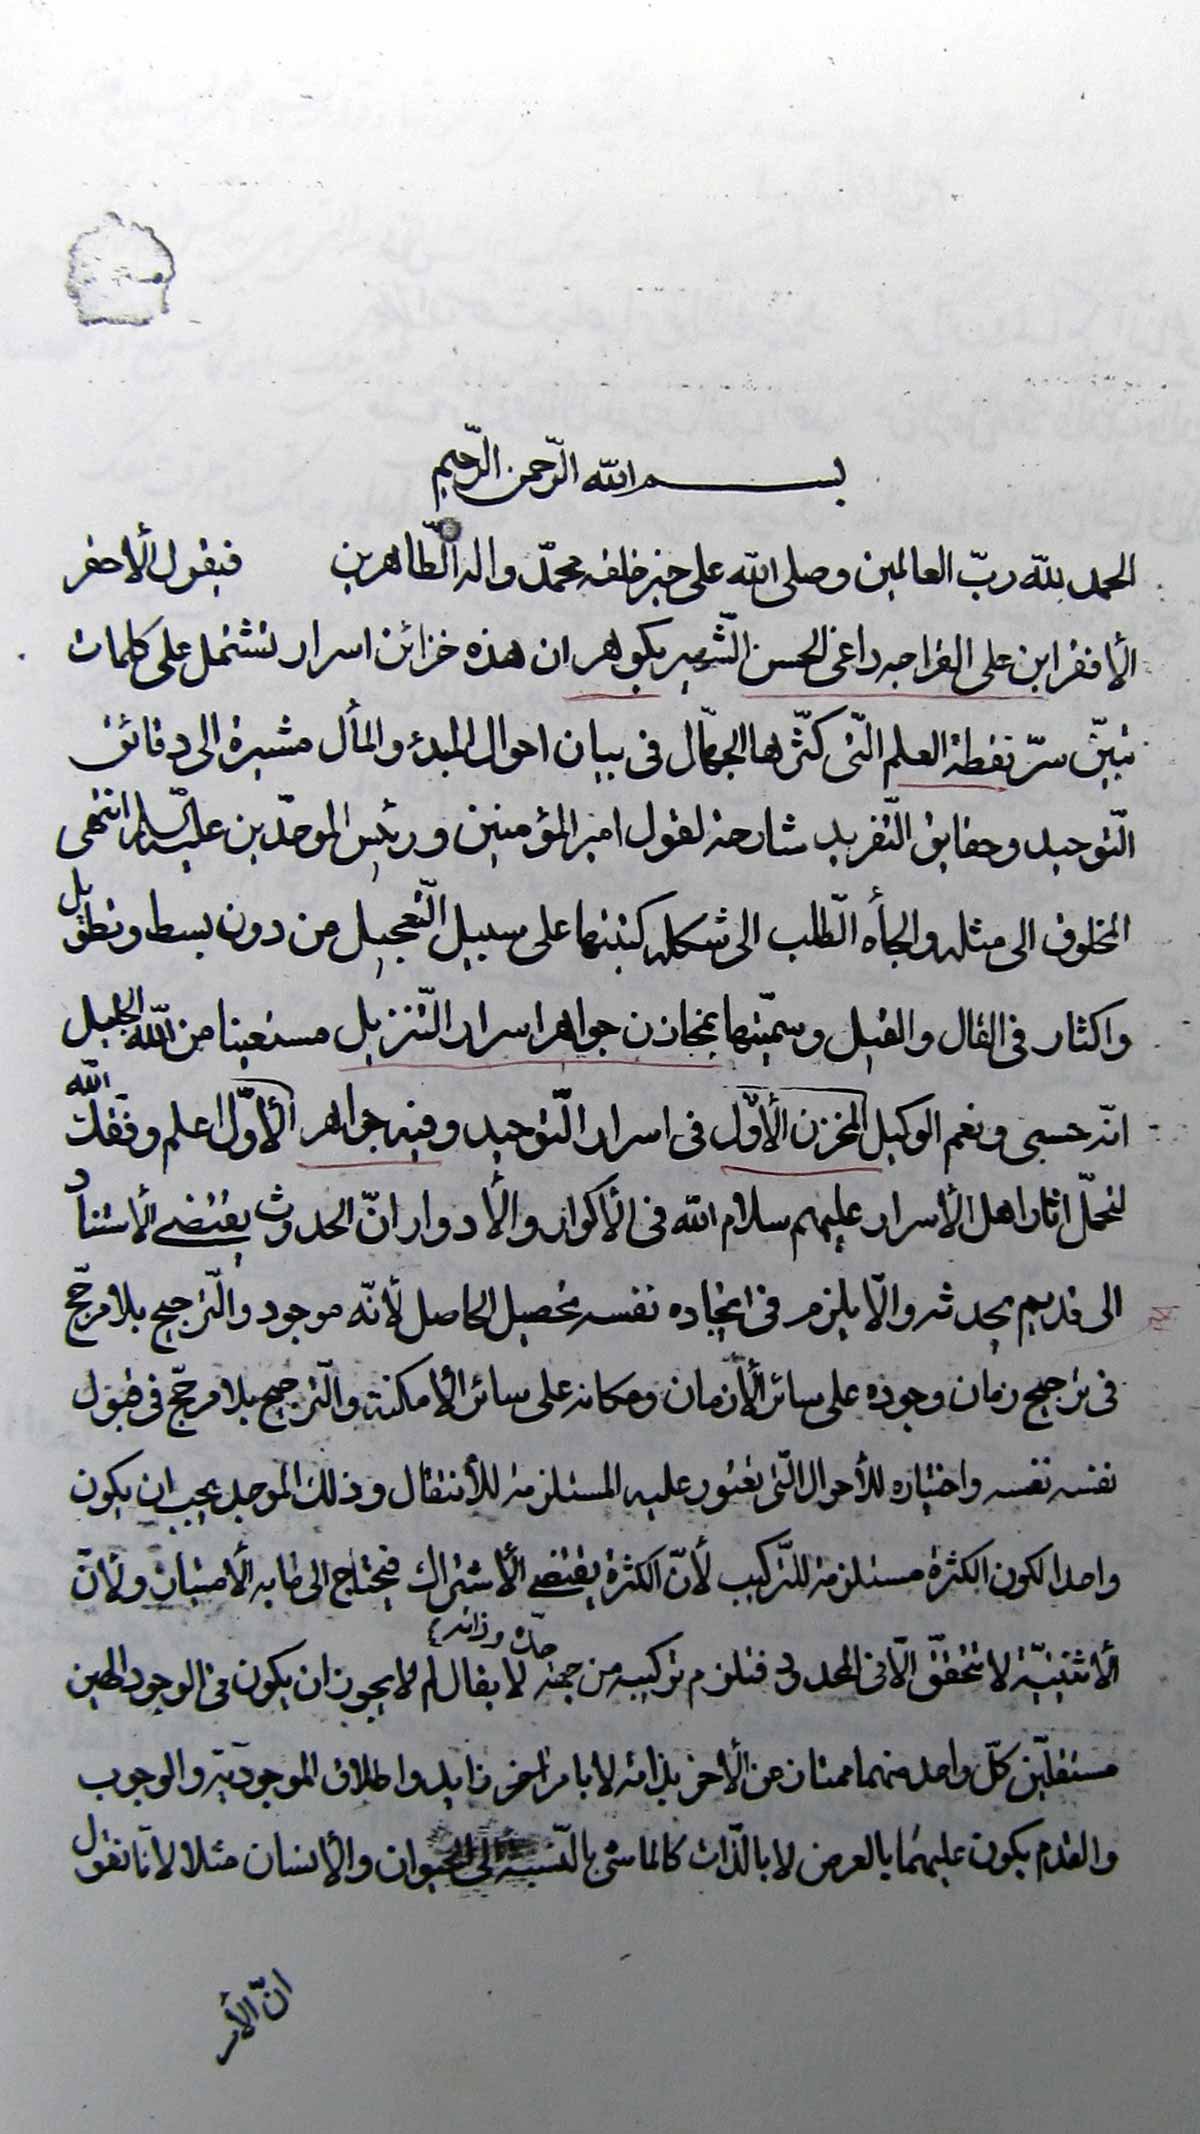 بسم الله الرّحمن الرّحيم
الحمد لله ربّ العالمين وصلى الله على خير خلقه محمّد واله الطّاهرين فيقول الأحقر
الأفقر ابن على القراجه داغى الحسن الشّهير بكوهر ان هذه خزائن اسرار تشتمل على كلمات
تبيّن سرّ نقطة العلم الّتى كثّرها الجهّال فى بيان احوال المبدء والمأل مشيرة الى دقائق
التّوحيد وحقايق التّفريد شارحة لقول امير المؤمنين ورئيس الموحّدين عليه السّلم انتهى
المخلوق الى مثله والجأه الطّلب الى شكله كتبتها على سبيل التّعجيل من دون بسط وتطويل
واكثار فى القال والقيل وسمّيتها بمخازن جواهر اسرار التّنزيل مستعينا من الله الجليل
انّه حسبى ونعم الوكيل المخزن الأوّل فى اسرار التّوحيد وفيه جواهر الأوّل اعلم وفّقك الله
لتحمّل اثار اهل الأسرار عليهم سلام الله فى الأكوار والأدوار انّ الحدوث يقتضى الأستناد
الى قديم يحدثه والّا يلزم فى ايجاده نفسه تحصيل الحاصل لأنّه موجود والتّرجيح بلا مرجّح
فى ترجيح زمان وجوده على سائر الأزمان ومكانه على سائر الأمكنة والتّرجيح بلا مرجّح فى قبول
نفسه نفسه واختياره للأحوال الّتى تعتور عليه المستلزمة للأنتقال وذلك الموجد يجب ان يكون
واحدا لكون الكثرة مستلزمة للتّركيب لأنّ الكثرة يقتضى الأشتراك فيحتاج الى ما به الأمتياز ولأنّ
الأثنينيّة لا تتحقّق الّا فى المحدود فتلزم تركيبه من جهة حدّه وذاته لا يقال لم لا يجوز ان يكون فى الوجود الهين
مستقلّين كلّ واحد منهما ممتاز عن الأخر بذاته لا بامر اخر زايد واطلاق الموجوديّة والوجوب
والقدم يكون عليهما بالعرض لا بالذّات كالماشى بالنّسبة الى الحيوان والأنسان مثلا لانّا نقول
انّ الأمر